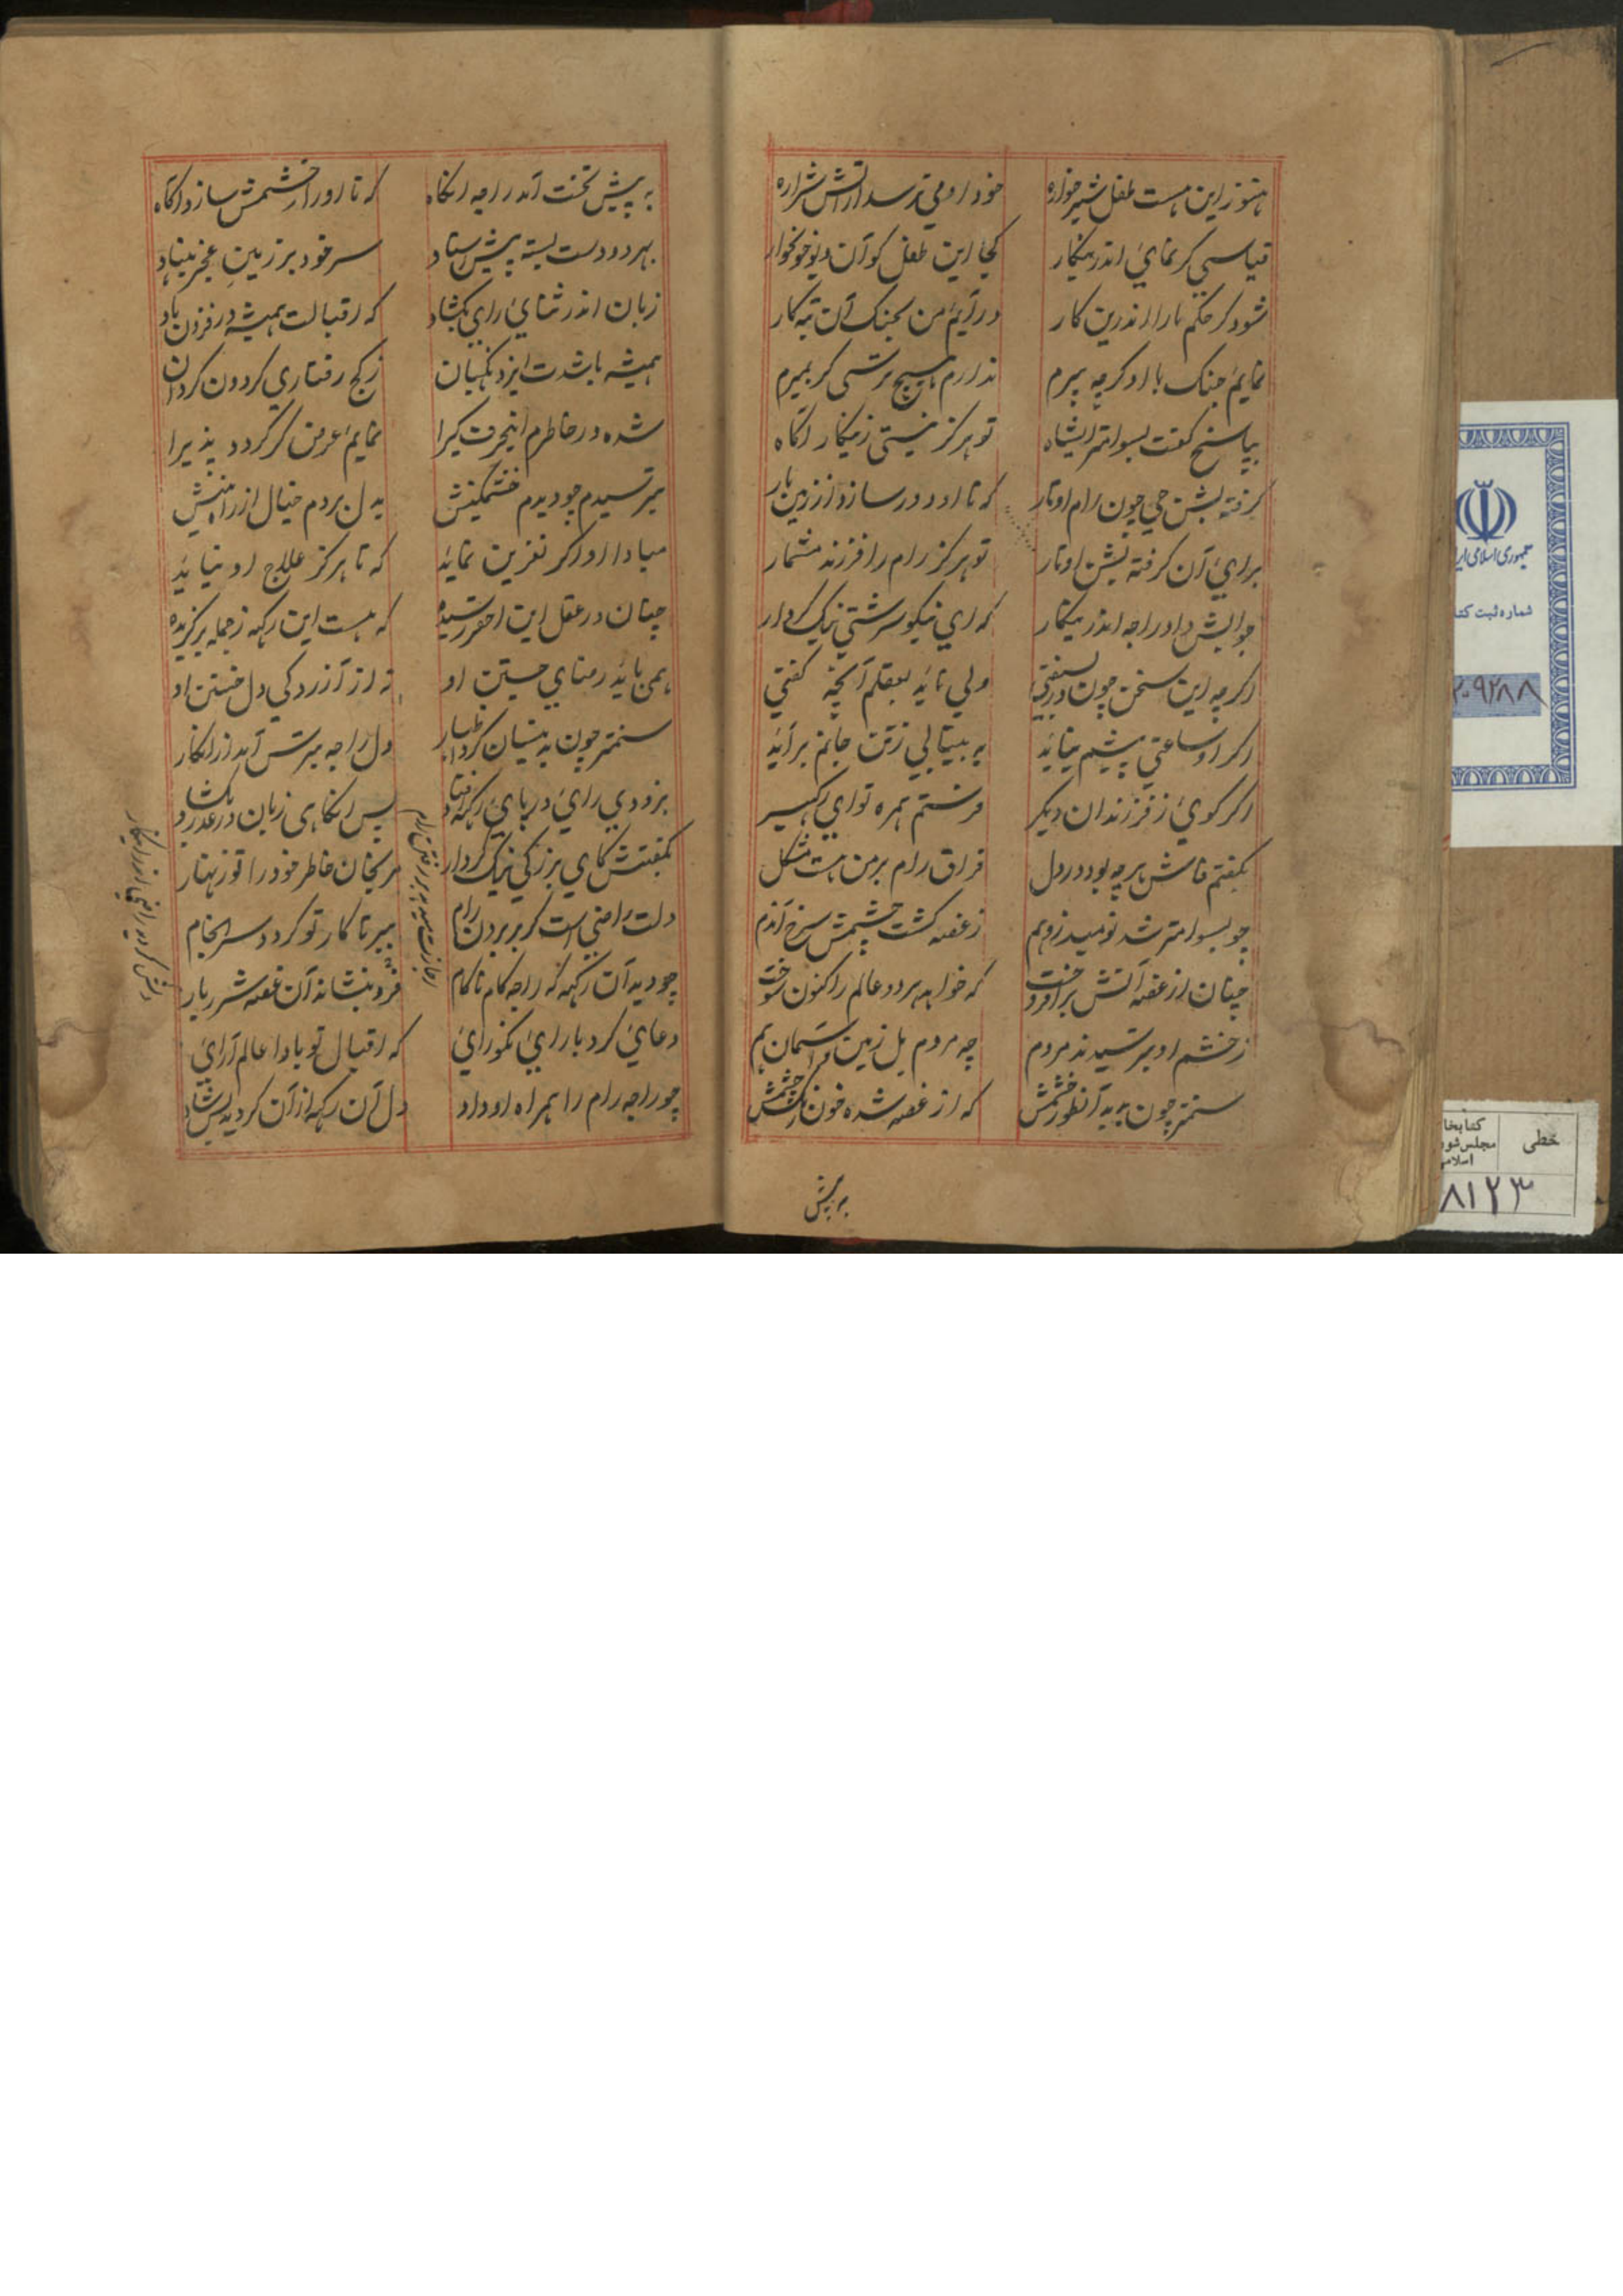 هنوز این هست طفل شیرخواره
خود او می ترسد از آتش شراره
قیاسی کر نمای اندرینکار
کجا این طفل کو آن دیو خونخوار
شود کر حکم مارا اندرین کار
درآیم من بجنک آن تبه کار
نمایم جنک با او کرچه پیرم
ندارم هیچ ترسی کر بمیرم
بپاسخ کفت بسوامتر ایشاه
تو هرکز نیستی زینکار اکاه
کرفته بشن جی چون رام اوتار
که تا او دور سازد از زمین بار
برای آن کرفته بشن اوتار
تو هرکز رام را فرزند مشمار
جوابش داد راجه اندرینکار
که ای نیکو سرشتی نیک کردار
اکرچه این سخن چون در بسفتی
ولی ناید بعقلم آنچه کفتی
اکر او ساعتی پیشم نیاید
به بیتابی زتن جانم برآید
اکر کوی ز فرزندان دیکر
فرستم همره تو ای رکهیسر
بکفتم فاش هرچه بود در دل
فراق رام بر من هست مشکل
چو بسوامتر شد نومید زو هم
ز غصه کشت چشمش سرخ آندم
چنان از غصه آتش برافروخت
که خواهد هر دو عالم را کنون سوخت
ز خشم او بترسیدند مردم
چه مردم بل زمین و آسمان هم
سنمتر چون بدید آنطور خشمش
که از غصه شده خون رنک چشمش
به پیش
به پیش تخت آمد راجه انکاه
که تا او را ز خشمش سازد اکاه
بهر دو دست بسته پیش استاد
سر خود بر زمین عجز بنهاد
زبان اندر ثنای رای بکشاد
که اقبالت همیشه در فزون باد
همیشه باشدت ایزد نکهبان
ز کج رفتاری کردون کردان
شده در خاطرم اینحرف کیرا
نمایم عرض کر کردد پذیرا
بترسیدم چو دیدم خشمکینش
بدل بردم خیال از راه بینش
مبادا او اکر نفرین نماید
که تا هرکز علاج او نیاید
چنان در عقل این احقر رسیده
که هست این رکهه ز جمله برکزیده
همی باید رضای جستن او
نه از آزردکی دل خستن او
سنمتر چون بدینسان کرد اظهار
دل راجه بترس آمد از انکار
بزودی رای در پای رکهه افتاد
پس انکاهی زبان در عذر بکشاد
بکفتش کای بزرکی نیک کردار
مرنجان خاطر خود را تو زنهار
دلت راضی است کر بر بردن رام
ببر تا کار تو کردد سرانجام
چو دید آن رکهه که راجه کام ناکام
فرو بنشاند آن غصه شرربار
دعای کرد با رای نکورای
که اقبال تو بادا عالم آرای
چو راجه رام را همراه او داد
دل آن رکهه از آن کردید بس شاد
راضی کردید راجه اندرینکار
جمهوری اسلامی ایر
شماره ثبت کتا
۲۰۹۲۸۸
خطی
کتابخا
مجلس شو
اسلامی
۸۱۲۳